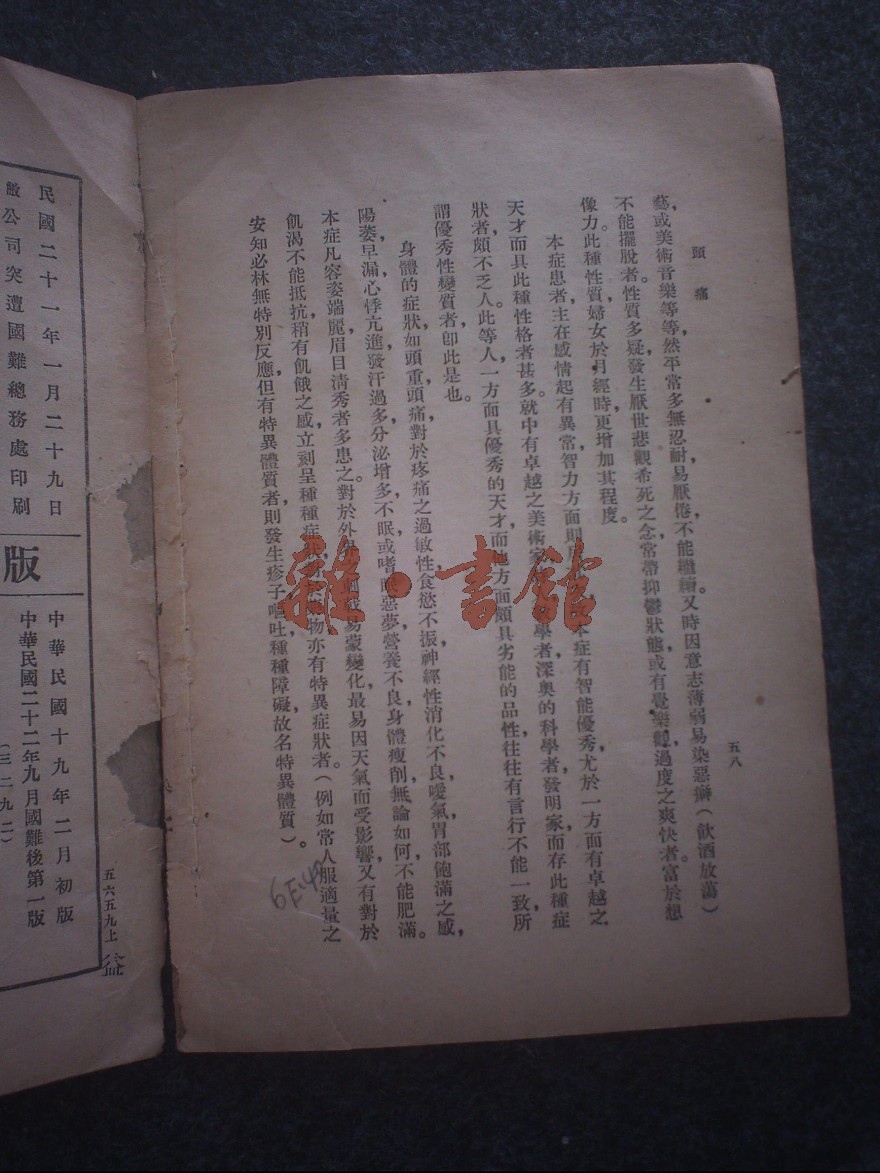 頭痛
五八
藝或美術音樂等等然平常多無忍耐易厭倦，不能繼續又時因意志薄弱易染惡癖（飲酒放蕩）
不能擺脫者性質多疑發生厭世悲觀希死之念常帶抑鬱狀態或有覺樂觀過度之爽快者富於想
像力。此種性質婦女於月經時更增加其程度。
本症患者，主在感情起有異常智力方面則 本症有智能優秀尤於一方面有卓越之
天才而具此種性格者甚多就中有卓越之美術家 學者深奥的科學者發明家而存此種症
狀者頗不乏人此等人一方面具優秀的天才，而他方面頗具劣能的品性往往有言行不能一致所
謂優秀性變質者卽此是也。
身體的症狀如頭重頭痛對於疼痛之過敏性食慾不振神經性消化不良噯氣胃部飽滿之感，
陽萎早漏，心悸亢進發汗過多分泌增多不眠或嗜眠惡夢營養不良身體瘦削，無論如何，不能肥滿。
本症凡容姿端麗眉目清秀者多患之。對於外界 易蒙變化最易因天氣而受影響又有對於
飢渴不能抵抗，稍有飢餓之感立刻呈種種症狀 物亦有特異症狀者。（例如常人服適量之
安知必林無特別反應但有特異體質者則發生疹子嘔吐種種障礙故名特異體質）。
雜·書館
民國二十一年一月二十九日
敝公司突遭國難總務處印刷
版
中華民國十九年二月初版
中華民國二十二年九月國難後第一版
（三二九二）
五六五九上